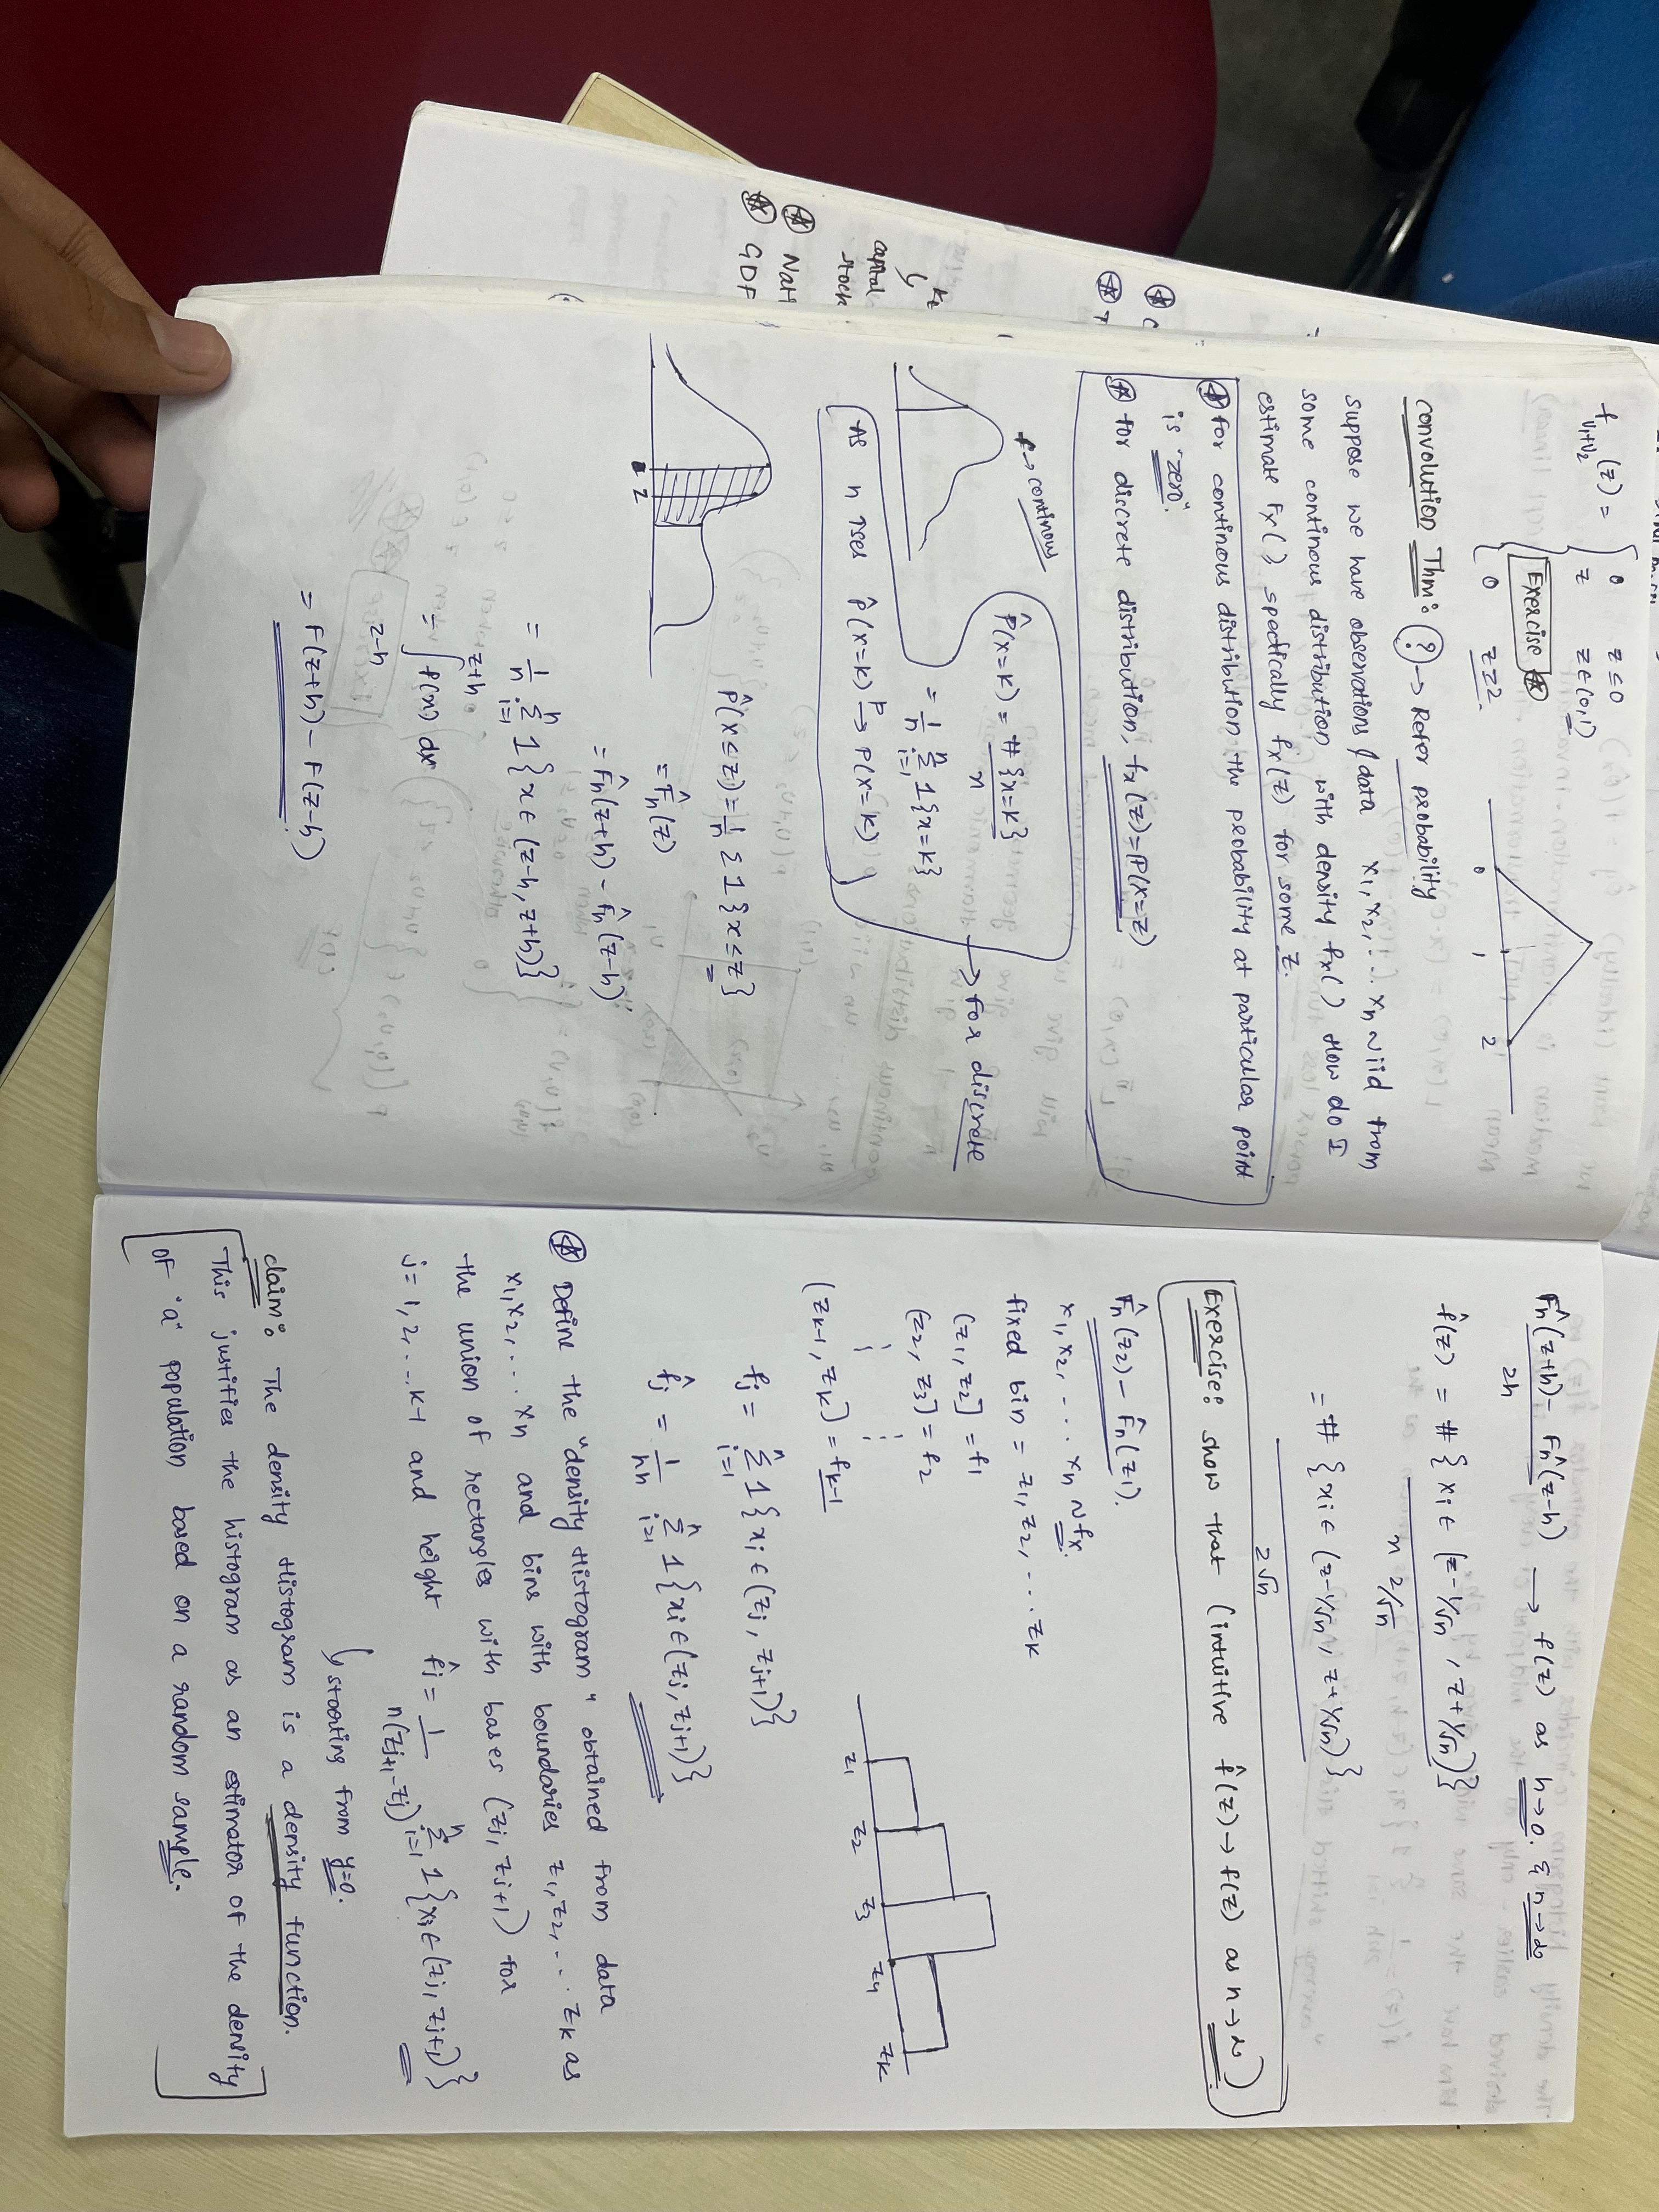 f_{U1+U2}(z) = { 0 z≤0
z z∈(0,1)
Exercise
0 z≥2.
0 1 2
convolution Thm: (?) → Refer probability
suppose we have observations/data x1, x2, ... xn ~iid from
some continous distribution with density fx() How do I
estimate Fx(), fx(z) for some z.
For continous distribution the probability at particular point
is "zero".
For discrete distribution, fx(z)=P(X=z)
f→continous
P̂(x=k) = #{x=k}/n → For discrete
= 1/n Σ_{i=1}^n 1{x=k}
As n P̂(x=k) →^P P(x=k)
z
P̂(x≤z) = 1/n Σ 1{x≤z}
= F̂n(z)
= F̂n(z+h) - F̂n(z-h)
= 1/n Σ_{i=1}^n 1{x∈(z-h, z+h)}
= ∫_{z-h}^{z+h} f(x) dx
= F(z+h) - F(z-h)
F̂n(z+h) - F̂n(z-h)/2h → f(z) as h→0. & n→∞
f̂(z) = #{xi ∈ (z-1/√n, z+1/√n)}/n 2/√n
= #{xi ∈ (z-1/√n, z+1/√n)}/2√n
Exercise: show that (intuitive f̂(z)→f(z) as n→∞)
F̂n(z2) - F̂n(z1).
x1, x2, ... xn ~ fx.
fixed bin = z1, z2, ... zk
(z1, z2] = f1
(z2, z3] = f2
⋮ ⋮
(zk-1, zk] = fk-1
z1 z2 z3 z4 zk
fj = Σ_{i=1}^n 1{xi∈(zj, zj+1)}
f̂j = 1/nh Σ_{i=1}^n 1{xi∈(zj, zj+1)}
Define the "density Histogram" obtained from data
x1, x2, ... xn and bins with boundaries z1, z2, ... zk as
the union of rectangles with bases (zj, zj+1) for
j=1, 2, ... k-1 and height f̂j = 1/n(zj+1-zj) Σ_{i=1}^n 1{xi∈(zj, zj+1)}
starting from y=0.
claim: The density Histogram is a density function.
This justifies the histogram as an estimator of the density
of "a" population based on a random sample.
C
Kt
capital
stock
GDP